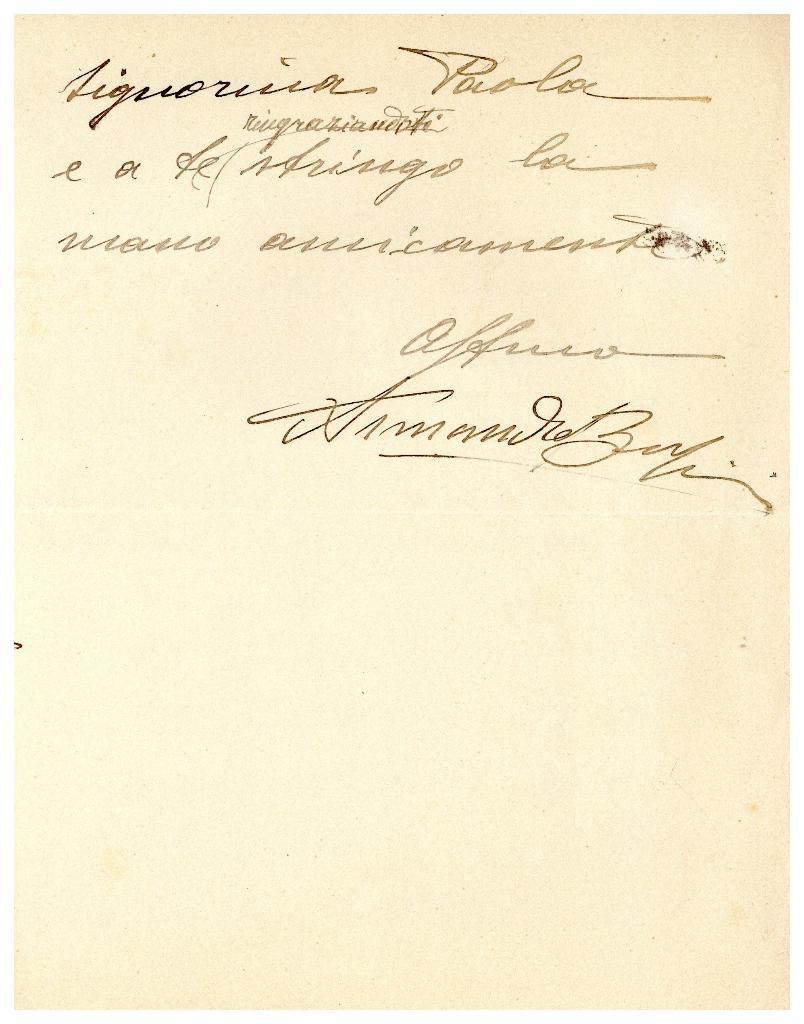 signorina Paola
ringraziandoti
e a te ( stringo la
mano amicamente
Affmo
Armando